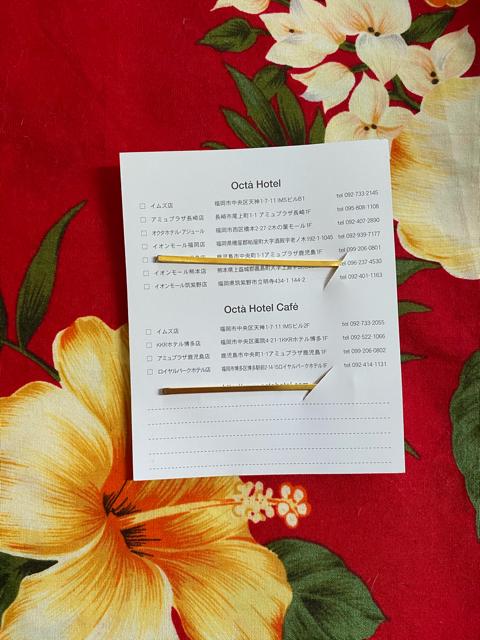 Octà Hotel
□ イムズ店 福岡市中央区天神1-7-11 IMSビルB1 tel 092-733-2145
□ アミュプラザ長崎店 長崎市尾上町1-1 アミュプラザ長崎1F tel 095-808-1108
□ オクタホテル・アジュール 福岡市西区橋本2-27-2 木の葉モール1F tel 092-407-2890
□ イオンモール福岡店 福岡県糟屋郡粕屋町大字酒殿字老ノ木192-1-1045 tel 092-939-7177
鹿児島市中央町1-1 アミュプラザ鹿児島1F tel 099-206-0801
□ イオンモール熊本店 熊本県上益城郡嘉島町大字上島 tel 096-237-4530
□ イオンモール筑紫野店 福岡県筑紫野市立明寺434-1 144-2 tel 092-401-1163
Octà Hotel Café
□ イムズ店 福岡市中央区天神1-7-11 IMSビル2F tel 092-733-2055
□ KKRホテル博多店 福岡市中央区薬院4-21-1 KKRホテル博多1F tel 092-522-1066
□ アミュプラザ鹿児島店 鹿児島市中央町1-1 アミュプラザ鹿児島1F tel 099-206-0802
□ ロイヤルパークホテル店 福岡市博多区博多駅前2-14-15 ロイヤルパークホテル1F tel 092-414-1131